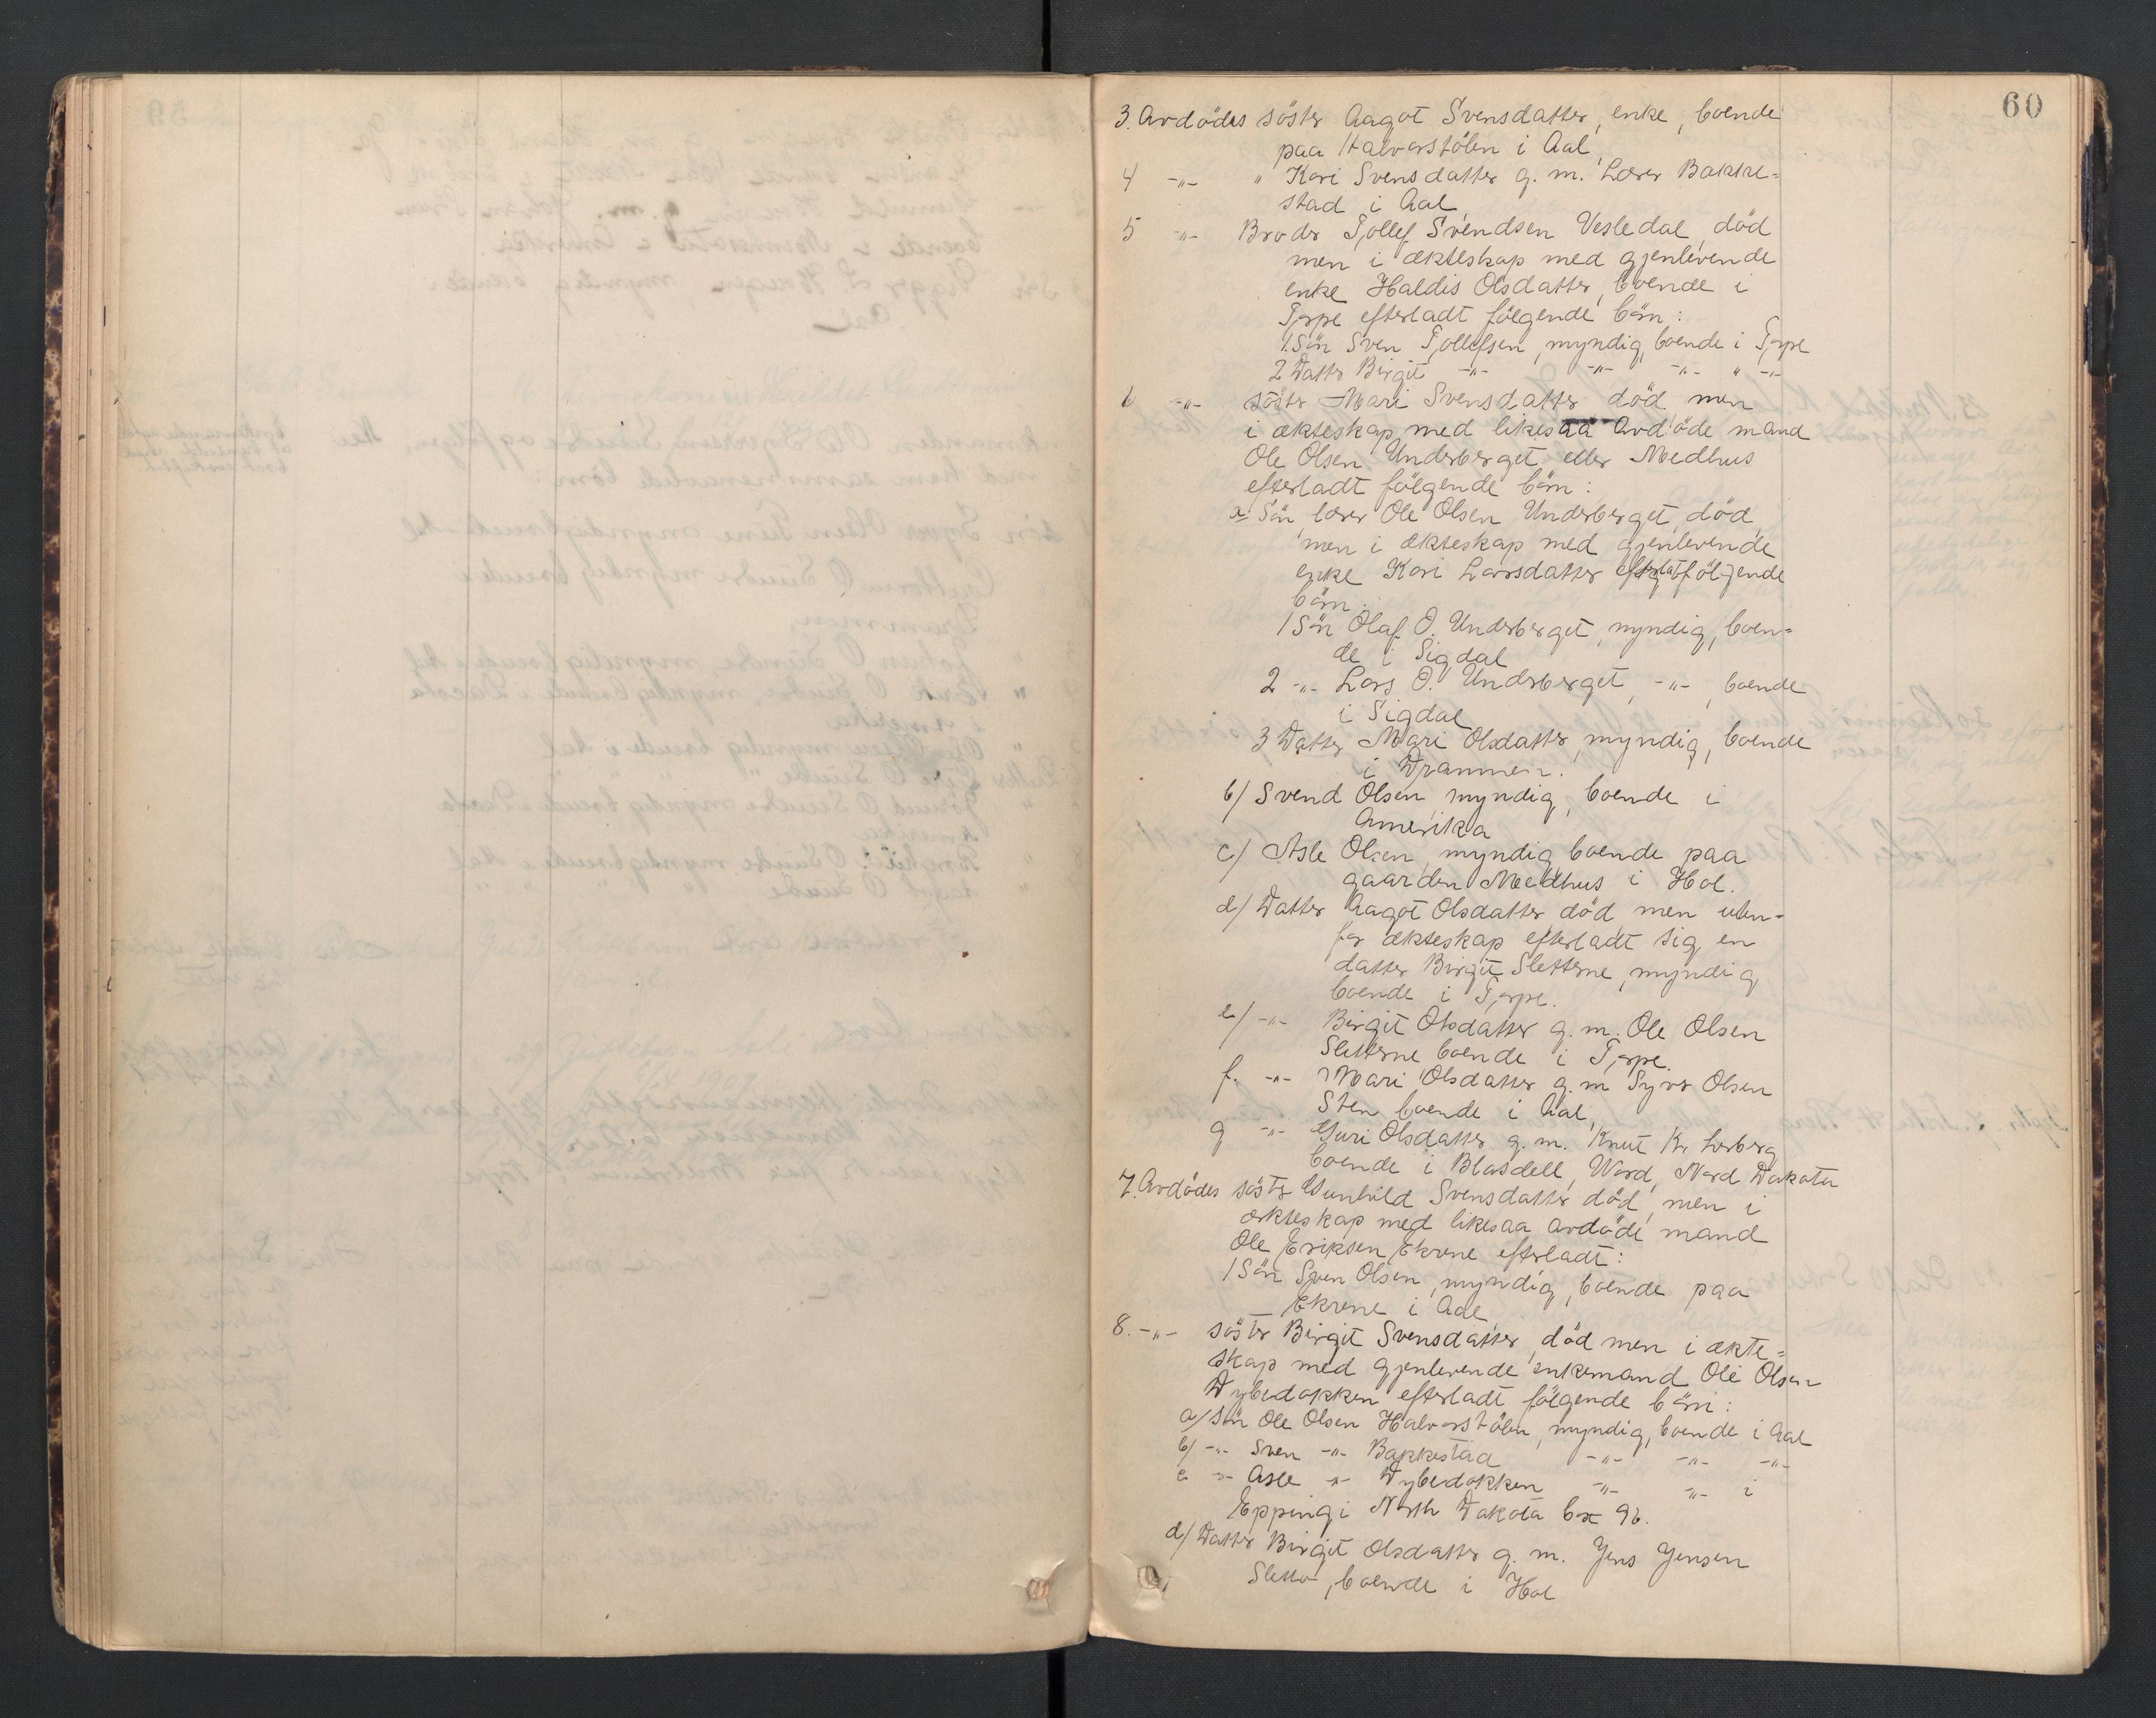 60
3. Avdödes söster Aagot Svensdatter, enke, boende
paa Halvorstölen i Aal,
4 -"- " Kari Svensdatter g. m. Lærer Bakke=
stad i Aal
5 -"- Broder Tollef Svendsen Vesledal, död
men i ekteskap med gjenlevende
enke Haldis Olsdatter, boende i
Torpe efterladt fölgende börn:
1. Sön Sven Tollefsen, myndig, boende i Torpe
2 Datter Birgit -"- -"- -"- " -"-
6 -"- söster Mari Svensdatter död men
i ekteskap med likesaa avdöde mand
Ole Olsen Underberget eller Medhus
efterladt fölgende börn:
a/ Sön, lærer Ole Olsen Underberget, död,
men i ekteskap med gjenlevende
enke Kari Larsdatter efterlat fölgende
börn:
1 Sön Olaf O. Underberget, myndig, boen=
de i Sigdal
2 -"- Lars O. Underberget, -"-, boende
i Sigdal
3 Datter Mari Olsdatter, myndig, boende
i Drammen.
b/ Svend Olsen myndig, boende i
Amerika
c/ Asle Olsen, myndig boende paa
gaarden Medhus i Hol.
d/ Datter Aagot Olsdatter död men uten=
for ekteskap efterladt sig en
datter Birgit Sletterne, myndig
boende i Torpe.
e/ -"- Birgit Olsdatter g. m. Ole Olsen
Sletterne boende i Torpe.
f. -"- Mari Olsdatter g. m Syver Olsen
Sten boende i Aal,
g -"- Guri Olsdatter g. m. Knut Kr. Lerberg
boende i Blasdell, Ward, Nord Dakota
7. Avdödes söster Gunhild Svensdatter död, men i
ekteskap med likesaa avdöde mand
Ole Eriksen Ekrene efterladt:
1 Sön Sven Olsen, myndig, boende paa
Ekrene i Aal
8. -"- söster Birgit Svensdatter, död men i ekte=
skap med gjenlevende enkemand Ole Olsen
Dybedokken efterladt fölgende börn:
a/ Sön Ole Olsen Halvorstölen, myndig, boende i Aal
b/ -"- Sven -"- Bakkestad -"- -"- -"-
c -"- Asle -"- Dybedokken -"- -"- i
Epping i North Dakota box 96.
d/ Datter Birgit Olsdatter g. m. Jens Jensen
Sletto, boende i Hol